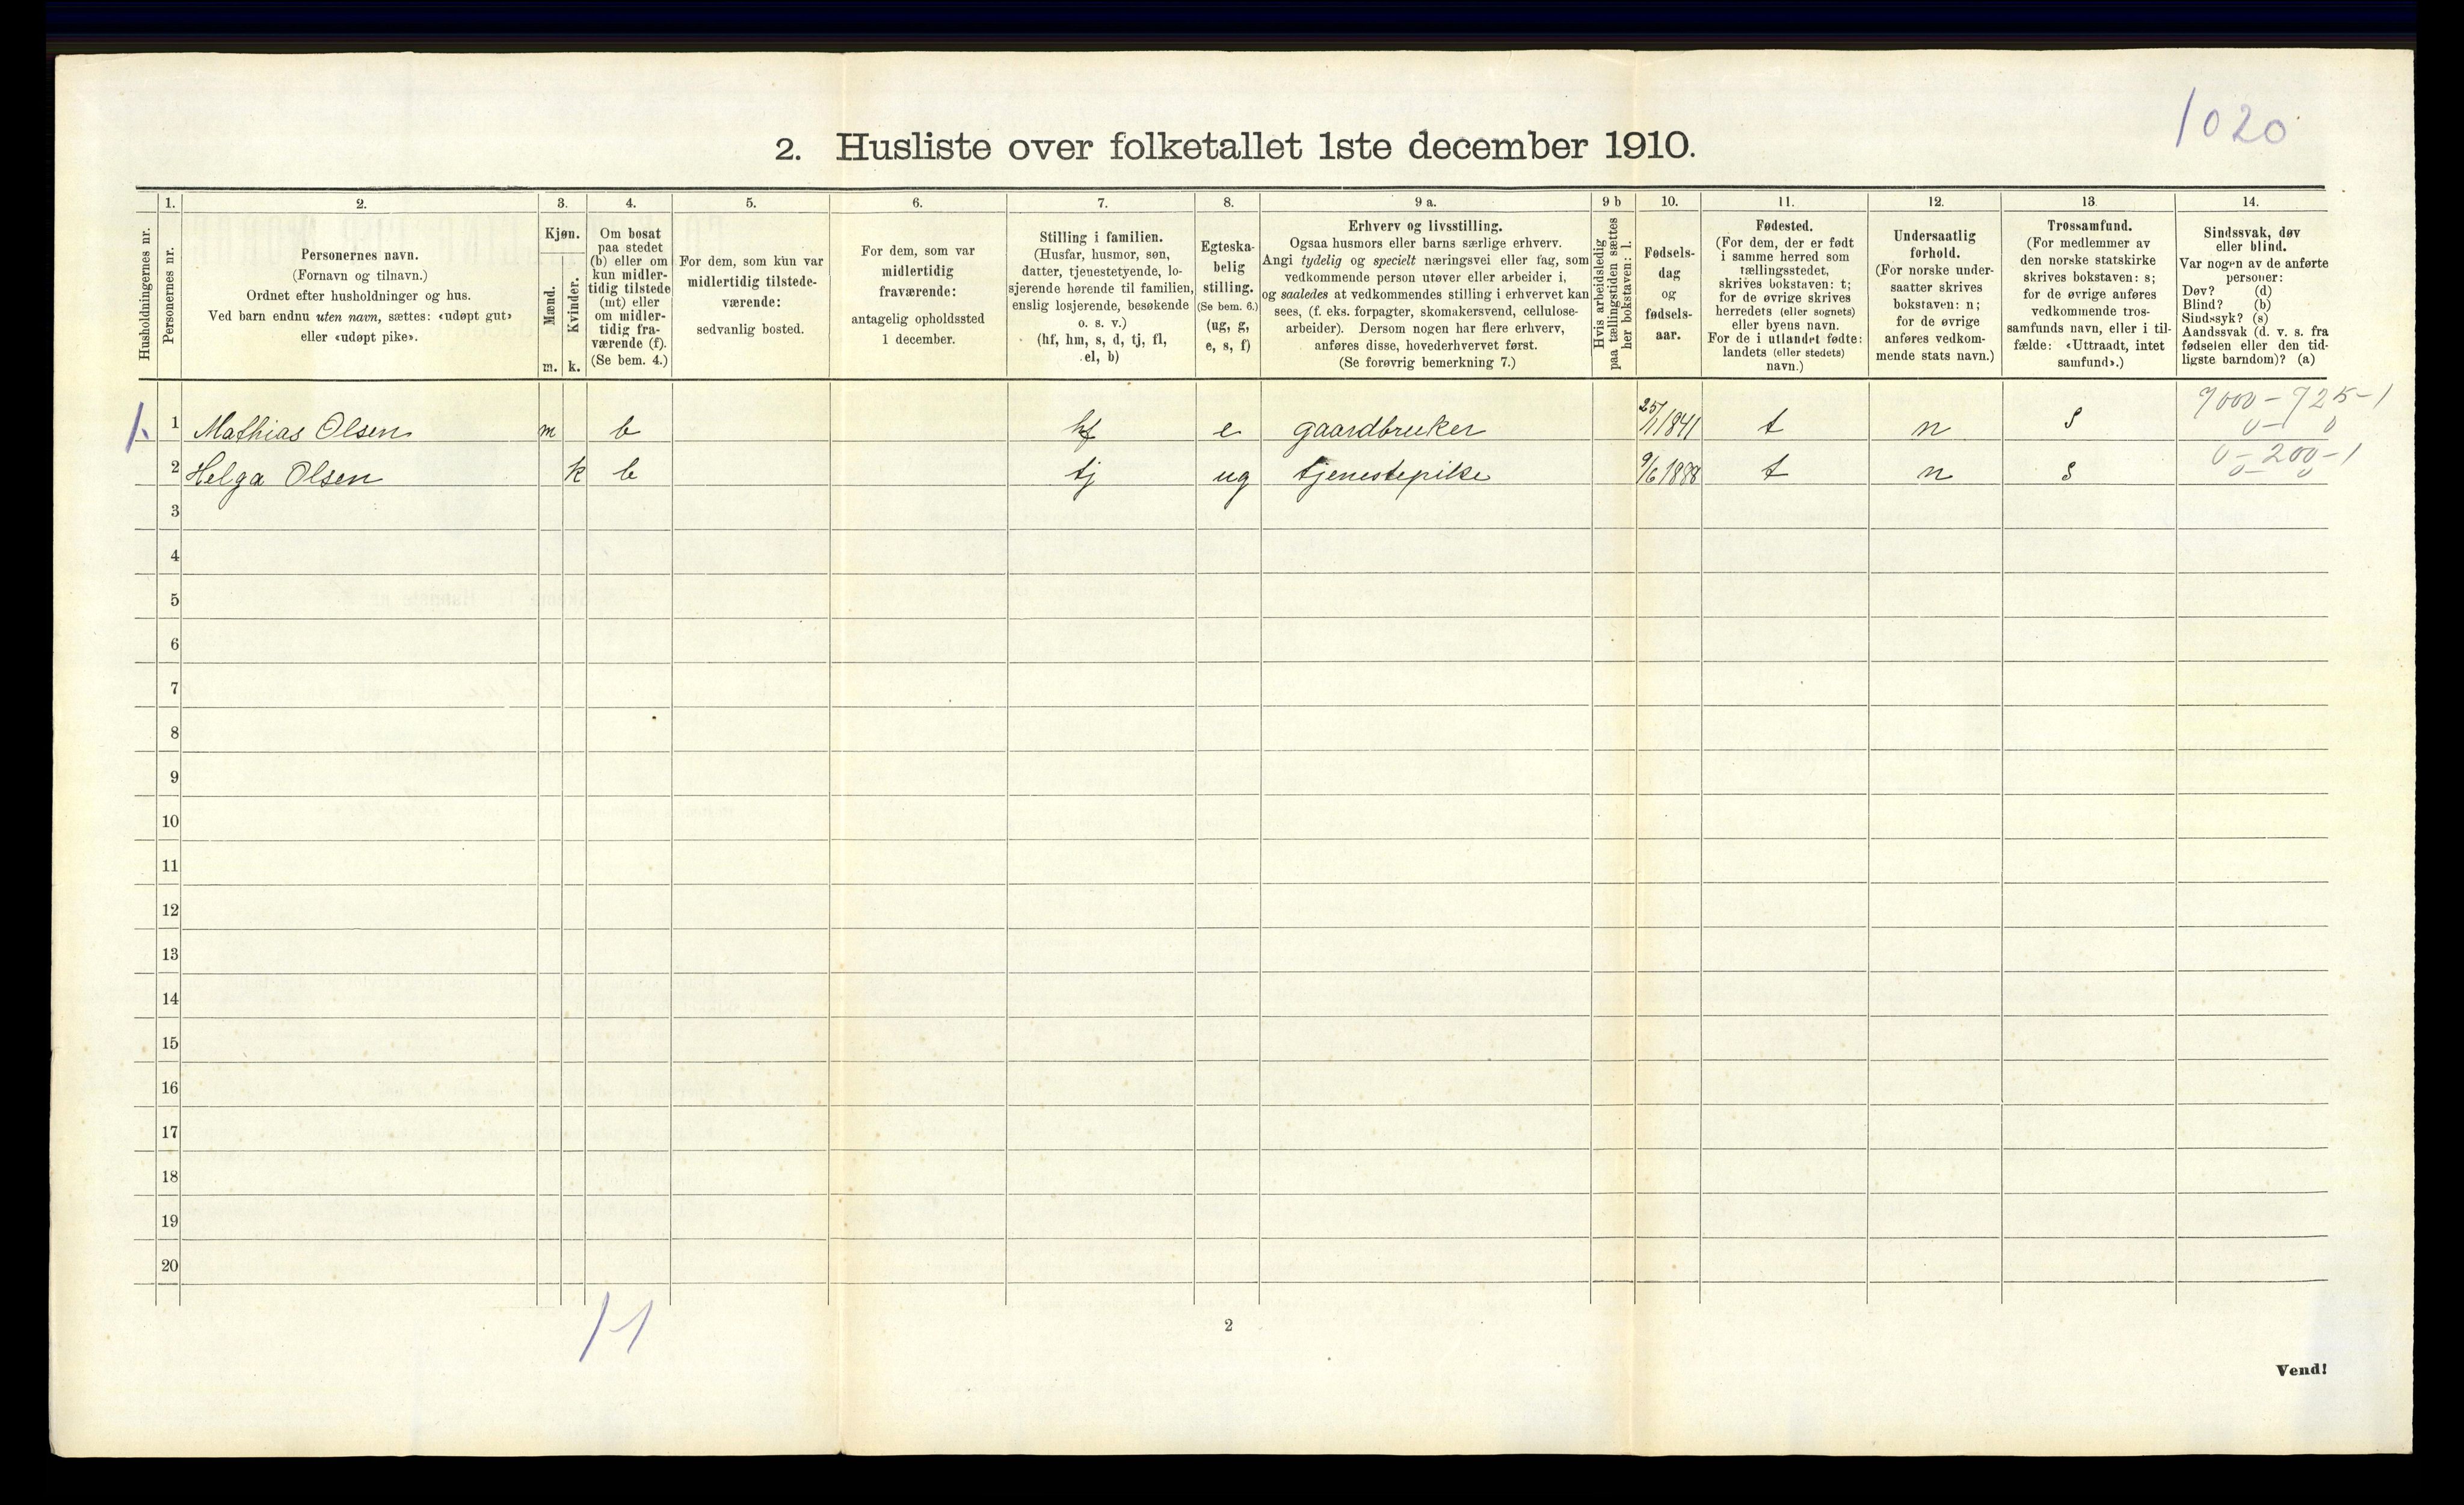 1020
2. Husliste over folketallet 1ste december 1910.
Husholdningernes nr.
1.
Personernes nr.
2.
Personernes navn.
(Fornavn og tilnavn.)
Ordnet efter husholdninger og hus.
Ved barn endnu uten navn, sættes: «udøpt gut»
eller «udøpt pike».
3.
Kjøn.
Mænd.
Kvinder.
m. k.
4.
Om bosat
paa stedet
(b) eller om
kun midler-
tidig tilstede
(mt) eller
om midler-
tidig fra-
værende (f).
(Se bem. 4.)
5.
For dem, som kun var
midlertidig tilstede-
værende:
sedvanlig bosted.
6.
For dem, som var
midlertidig
fraværende:
antagelig opholdssted
1 december.
7.
Stilling i familien.
(Husfar, husmor, søn,
datter, tjenestetyende, lo-
sjerende hørende til familien,
enslig losjerende, besøkende
o. s. v.)
(hf, hm, s, d, tj, fl,
el, b)
8.
Egteska-
belig
stilling.
(Se bem. 6.)
(ug, g,
e, s, f)
9 a.
Erhverv og livsstilling.
Ogsaa husmors eller barns særlige erhverv.
Angi tydelig og specielt næringsvei eller fag, som
vedkommende person utøver eller arbeider i,
og saaledes at vedkommendes stilling i erhvervet kan
sees, (f. eks. forpagter, skomakersvend, cellulose-
arbeider). Dersom nogen har flere erhverv,
anføres disse, hovederhvervet først.
(Se forøvrig bemerkning 7.)
9 b
Hvis arbeidsledig
paa tællingstiden sættes
her bokstaven: l.
10.
Fødsels-
dag
og
fødsels-
aar.
11.
Fødested.
(For dem, der er født
i samme herred som
tællingsstedet,
skrives bokstaven: t;
for de øvrige skrives
herredets (eller sognets)
eller byens navn.
For de i utlandet fødte:
landets (eller stedets)
navn.)
12.
Undersaatlig
forhold.
(For norske under-
saatter skrives
bokstaven: n;
for de øvrige
anføres vedkom-
mende stats navn.)
13
Trossamfund.
(For medlemmer av
den norske statskirke
skrives bokstaven: s;
for de øvrige anføres
vedkommende tros-
samfunds navn, eller i til-
fælde: «Uttraadt, intet
samfund».)
14.
Sindssvak, døv
eller blind.
Var nogen av de anførte
personer:
Døv? (d)
Blind? (b)
Sindssyk? (s)
Aandssvak (d. v. s. fra
fødselen eller den tid-
ligste barndom)? (a)
9000-725-1
0- 0
1. 1 Mathias Olsen m b hf e gaardbruker 25/11 1841 t n s
0-200-1
0- 0
2 Helga Olsen k b tj ug tjenestepike 9/6 1888 t n s
3
4
5
6
7
8
9
10
11
12
13
14
15
16
17
18
19
20
1-1
2
Vend!